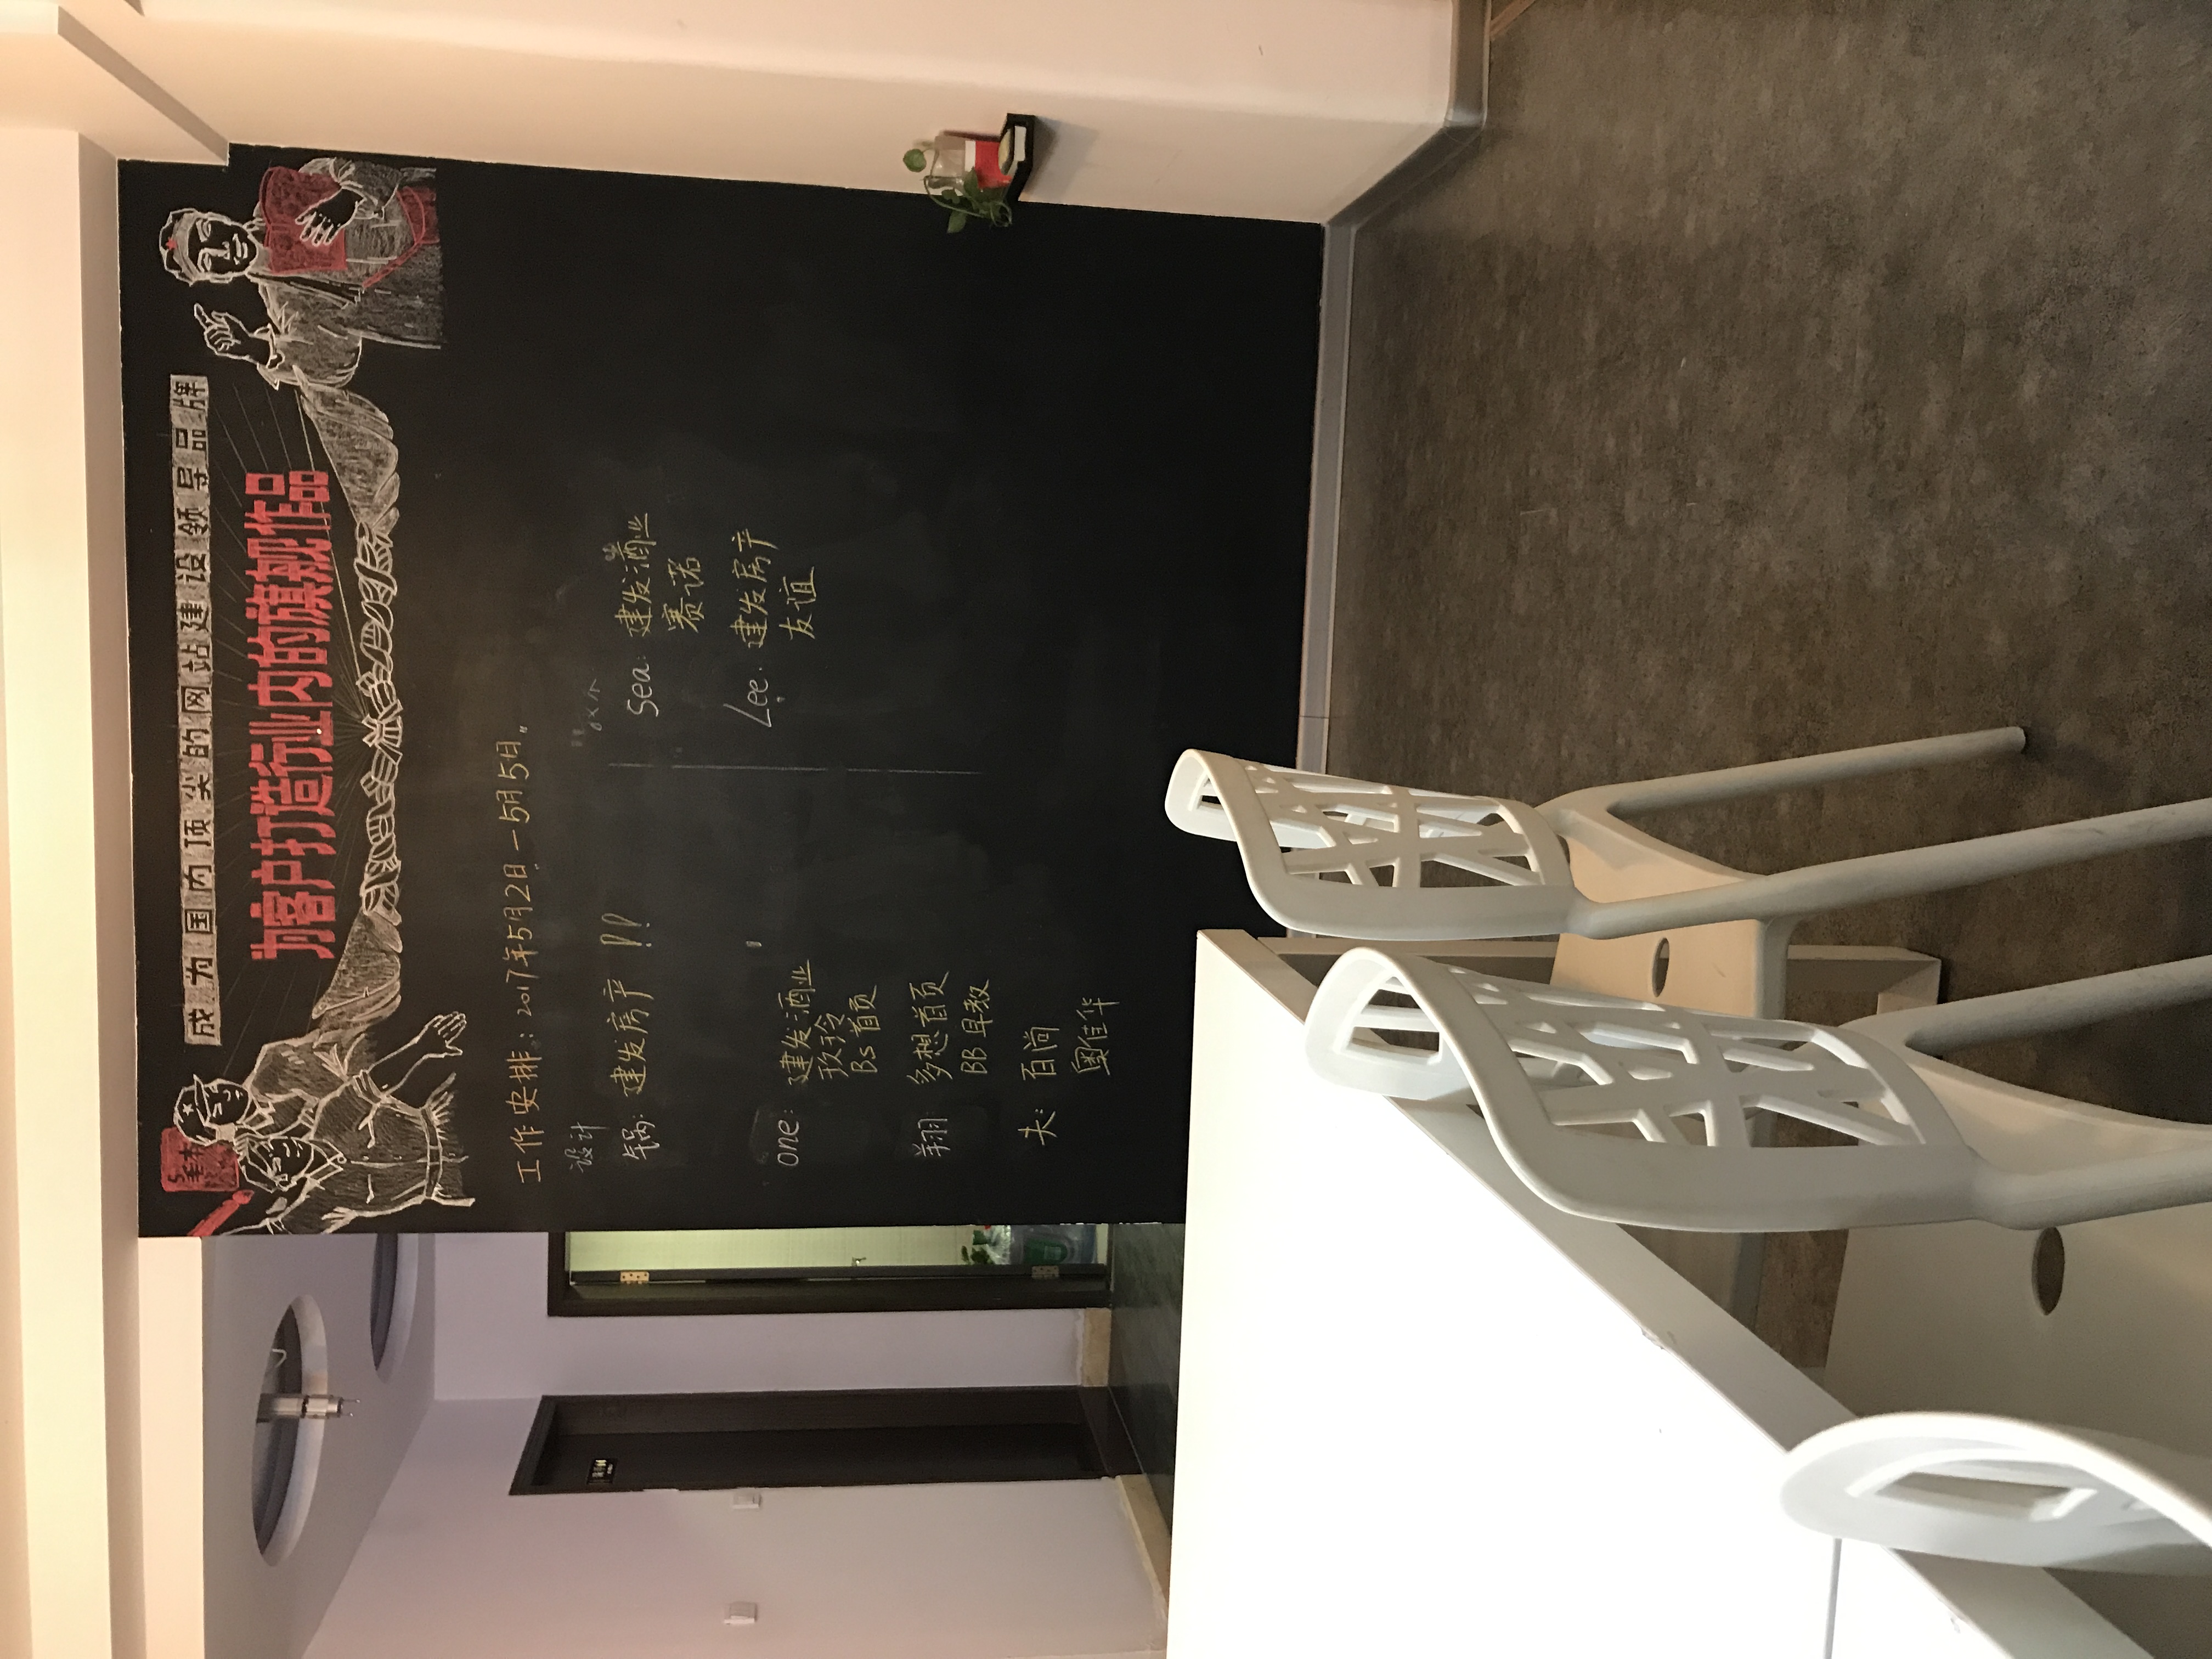 成为国内顶尖的网站建设领导品牌
为客户打造行业内的旗舰作品
工作安排：2017年5月2日－5月5日。
设计
锅：建发房产 !!
one：建发酒业
玖玲
Bs 首页
翔 多想首页
BB 早教
夫：百尚
奥佳华
Sea：建发酒业
赛诺
Lee：建发房产
友谊